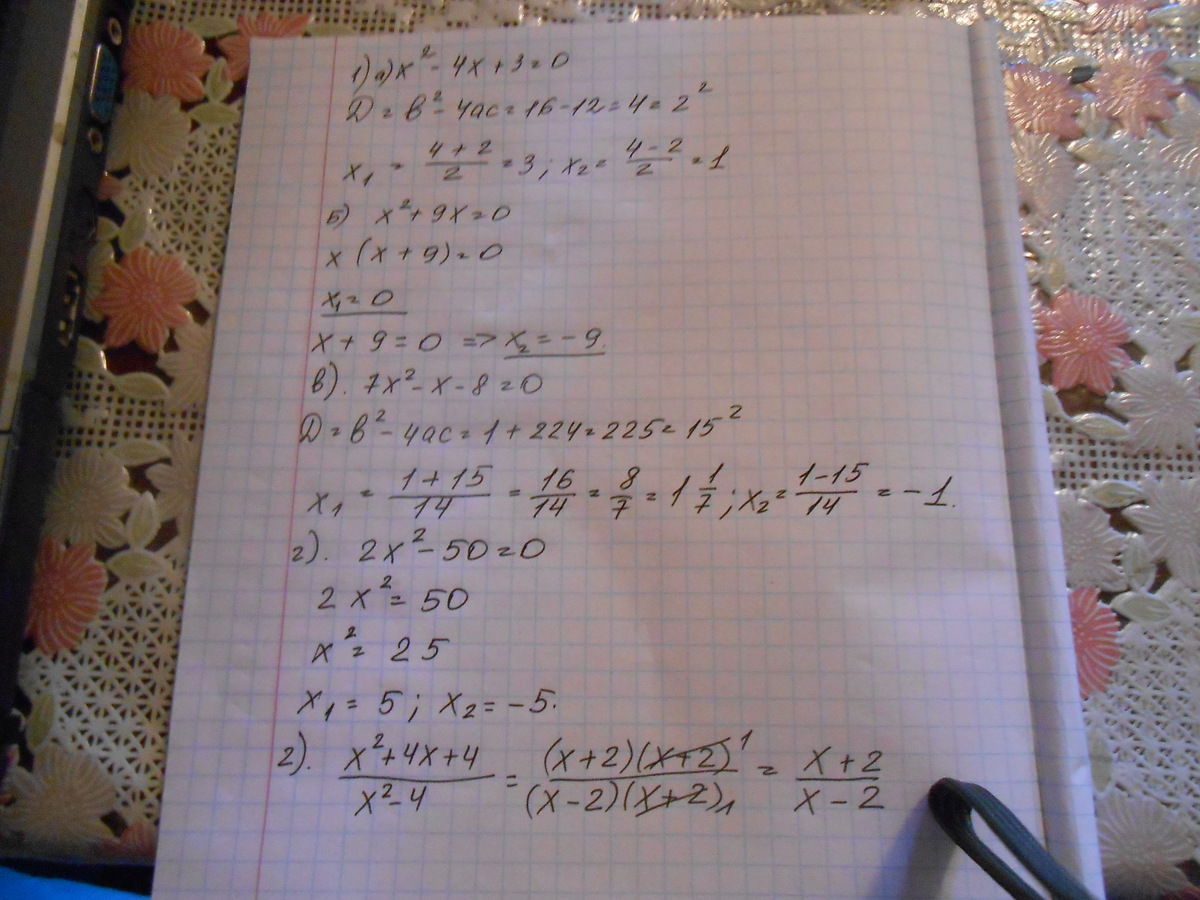 1) а) x² - 4x + 3 = 0
D = b² - 4ac = 16 - 12 = 4 = 2²
x₁ = (4 + 2)/2 = 3; x₂ = (4 - 2)/2 = 1
б) x² + 9x = 0
x (x + 9) = 0
x₁ = 0
x + 9 = 0 => x₂ = -9.
в). 7x² - x - 8 = 0
D = b² - 4ac = 1 + 224 = 225 = 15²
x₁ = (1 + 15)/14 = 16/14 = 8/7 = 1 1/7; x₂ = (1 - 15)/14 = -1.
г). 2x² - 50 = 0
2x² = 50
x² = 25
x₁ = 5; x₂ = -5.
2). (x² + 4x + 4)/(x² - 4) = ((x + 2)(x + 2)¹)/((x - 2)(x + 2)₁) = (x + 2)/(x - 2)